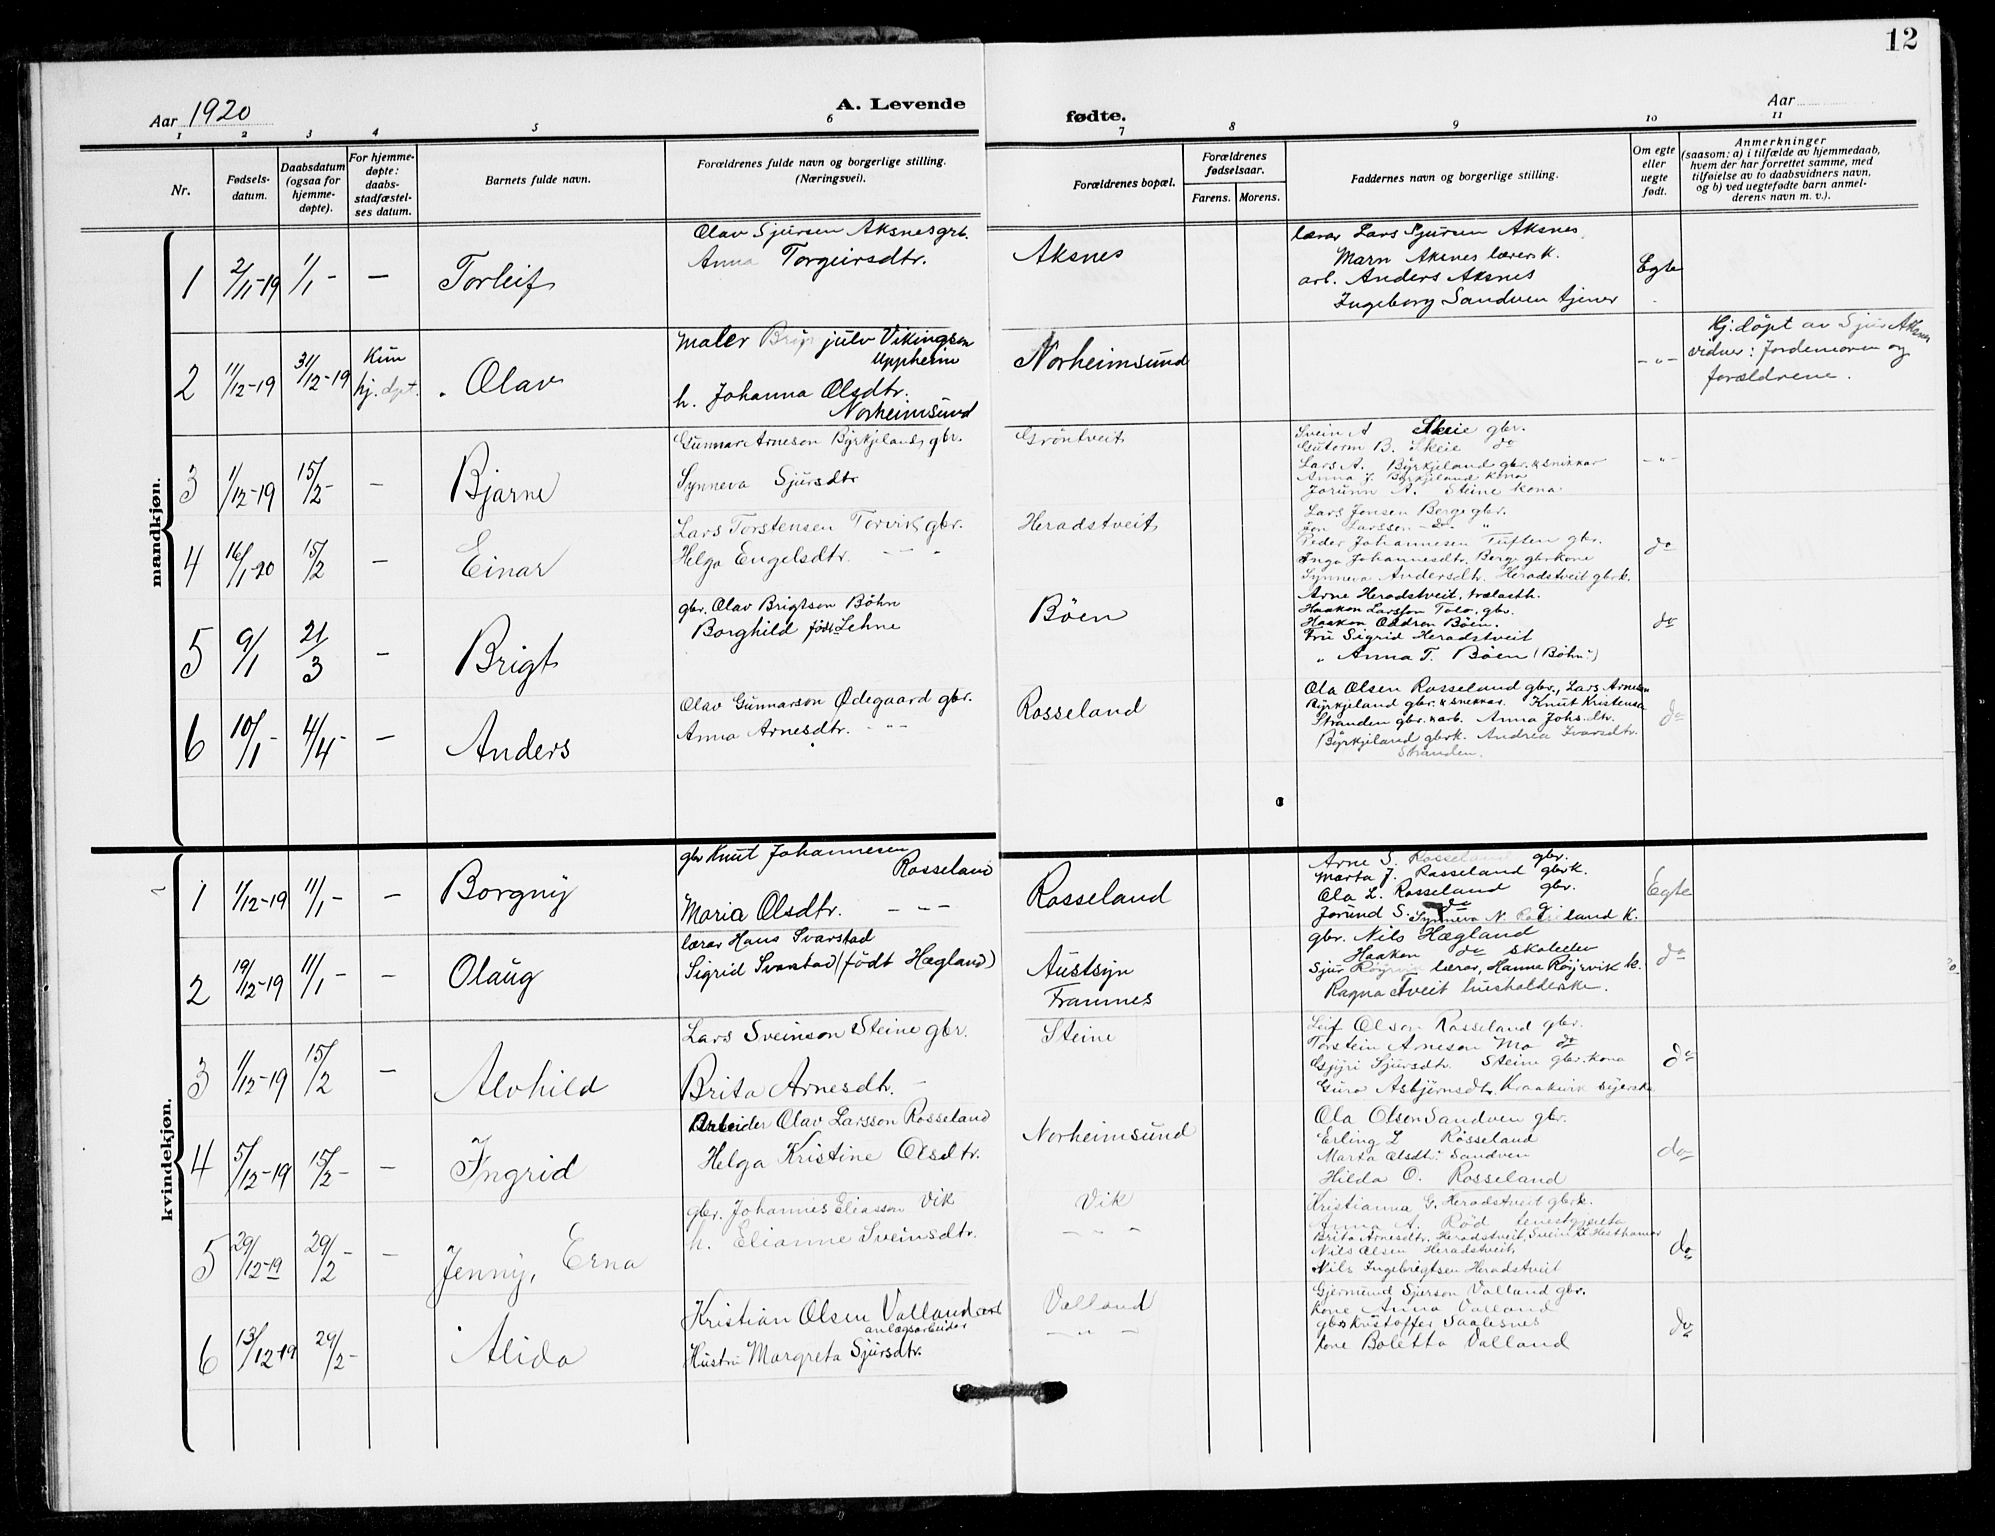 12
Aar 1920
A. Levende
fødte.
Aar
1 2 3 4 5 6 7 8 9 10 11
Nr.
Fødsels-
datum.
Daabsdatum
(ogsaa for
hjemme-
døpte).
For hjemme-
døpte:
daabs-
stadfæstel-
ses datum.
Barnets fulde navn.
Forældrenes fulde navn og borgerlige stilling.
(Næringsvei).
Forældrenes bopæl.
Forældrenes
fødselsaar.
Farens. Morens.
Faddernes navn og borgerlige stilling.
Om egte
eller
uegte
født.
Anmerkninger
(saasom: a) i tilfælde av hjemmedaab,
hvem der har forrettet samme, med
tilføielse av to daabsvidners navn,
og b) ved uegtefødte barn anmel-
derens navn m. v.).
mandkjøn.
1 2/11-19 1/1- — Torleif
Olav Sjursen Aksnes grb.
Anna Torgeirsdtr.
Aksnes
lærar Lars Sjursen Aksnes
Marn Aksnes lærer k.
arb. Anders Aksnes
Ingeborg Sandven tjener
Egte
2 11/12-19 31/12-19 Kun
hj. dpt. Olav
Maler Vikingson
Uppheim
h. Johanna Olsdtr.
Norheimsund
Norheimsund
-"-
Hj: døpt av Sjur Aksnes
vidner: Jordemoren og
forældrene.
3 1/12-19 15/2- — Bjarne
Gunnar Arneson Byrkjeland gbr.
Synneva Sjursdtr
Gröntveit
Svein A Skeie gbr.
Gutorm B. Skeie do
Lars A. Byrkjeland gbr. & snikkar
Anna J. Byrkjeland kona
Jorunn A. Steine kona
-"-
4 16/1-20 15/2 — Einar
Lars Torstensen Torvik gbr.
Helga Engelsdtr. - - -
Heradstveit
Lars Jonsen Berge gbr.
Jon Larsson - do. "
Peder Johannesen Tuften gbr.
Inga Johannesdtr. Berge gbrkone
Synneva Andersdtr. Heradstveit gbrk.
do
5 9/1 21/3 — Brigt
gbr. Olav Brigtson Böhn
Borghild född Lehne
Böen
Arne Heradstveit, trælasth.
Haakon Larsson Tolo, gbr.
Haakon Böen.
Fru Sigrid Heradstveit
" Anna T. Böen (Böhn)
do
6 10/1- 4/4- — Anders
Olav Gunnarson Ødegaard gbr.
Anna Arnesdtr. - "-
Rosseland
Ola Olsen Rosseland gbr., Lars Arneson
Byrkjeland gbr. & snekkar. Knut Kristensa
Stranden gbr. & arb. Anna Johs. dtr.
Byrkjeland gbrk. Andrea Ivarsdtr.
Stranden.
do
kvindekjøn.
1 1/12-19 11/1- — Borgny
gbr Knut Johannesen
Rosseland
Maria Olsdtr. - - -
Rosseland
Arne S. Rosseland gbr.
Marta J. Rosseland gbrk.
Ola L. Rosseland gbr.
Jorund S. do Synneva N. Rosseland K.
Egte
2 19/12-19 11/1- — Olaug
lærar Hans Svarstad
Sigrid Svarstad (født Hægland)
Austsyn
Framnes
gbr. Nils Hægland
Haakon do skoleelev
Sjur Röyrvik lærar, Hanna Röyrvik k.
Ragna Tveit husholderske.
do
3 1/12-19 15/2 — Alvhild
Lars Sveinson Steine gbr.
Brita Arnesdtr. -
Steine
Leif Olson Rosseland gbr.
Torstein Arneson Mo do
Gjyri Sjursdtr. Steine gbr. kona
Guro Asbjørnsdtr. Kraakevik syerske
do
4 5/12-19 15/2- — Ingrid
Arbeider Olav Larsson Rosseland
Helga Kristine Olsdtr.
Norheimsund
Ola Olson Sandven gbr.
Erling L Rosseland
Marta Olsdtr. Sandven
Hilda O. Rosseland
do
5 29/12-19 29/2- — Jenny, Erna
gbr. Johannes Eliasson Vik
h. Elianne Sveinsdtr.
Vik
- - -
Kristianna G. Heradstveit gbrk.
Anna A. Rød tenestgjenta
Brita Arnesdtr. Heradstveit, Svein Hesthamar
Nils Olsen Heradstveit
Nils Ingebrigtsen Heradstveit
do
6 13/12-19 29/2- Alida
Kristian Olsen Valland
anlægsarbeider
Hustru Margreta Sjursdtr.
Valland
- " -
Gjermund Sjurson Valland gbr.
kone Anna Valland
gbr Kristoffer Saalesnes
kone Boletta Valland
do